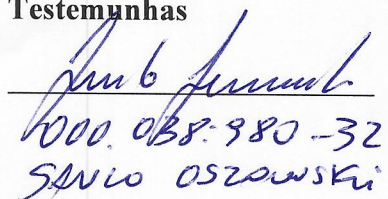 Testemunhas
000.038.980-32
SAVIO OSZOWSKI